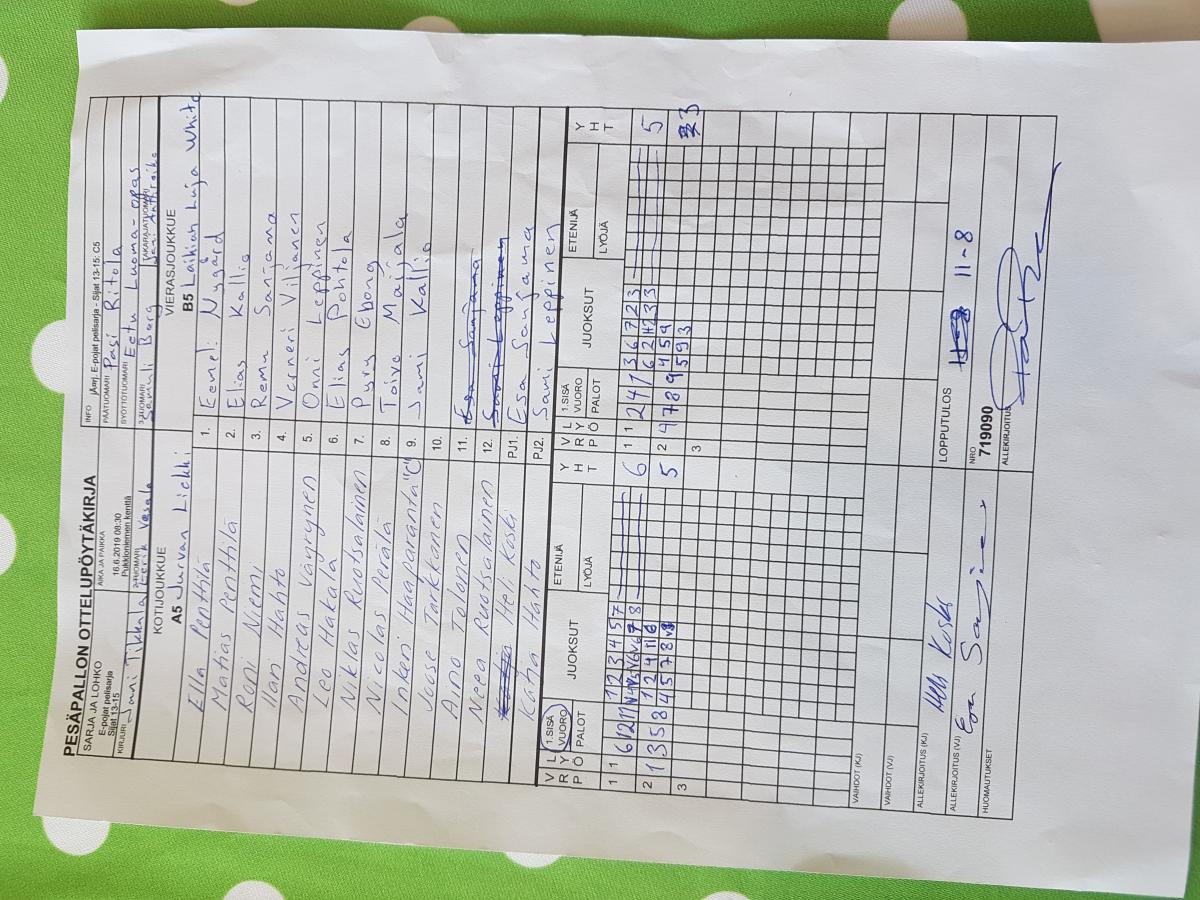 PESÄPALLON OTTELUPÖYTÄKIRJA
SARJA JA LOHKO
E-pojat pelisarja
Sijat 13-15
AIKA JA PAIKKA
16.6.2019 08:30
Pukkiloniemen kenttä
INFO
iAmj. E-pojat pelisarja - Sijat 13-15: C5
PÄÄTUOMARI Pasi Ritola
SYÖTTÖTUOMARI Eetu Luoma-opas
KIRJURI Jani Tikkala
2-TUOMARI Eerik Vesala
3-TUOMARI Samuli Borg
TAKARAJATUOMARI
KOTIJOUKKUE
A5 Jurvan Liekki
VIERASJOUKKUE
B5 Laihian Luja White
Ella Penttilä 1. Eemeli Nygård
Matias Penttilä 2. Elias Kallio
Roni Niemi 3. Remu Sanjama
Ilari Hahto 4. Verneri Viljanen
Andreas Väyrynen 5. Onni Leppinen
Leo Hakala 6. Elias Pohtola
Niklas Ruotsalainen 7. Pyry Ebong
Nicolas Perälä 8. Toivo Maijala
Inkeri Haaparanta "C" 9. Sami Kallio
Joose Tarkkanen 10.
Aino Tolonen 11. Esa Sanjama
Neea Ruotsalainen 12. Sami Leppinen
Heli Koski PJ1. Esa Sanjama
Katja Hahto PJ2. Sami Leppinen
V R Ö
L Y P
1.SISÄ VUORO
PALOT
JUOKSUT
ETENIJÄ
LYÖJÄ
Y H T
V R Ö
L Y P
1.SISÄ VUORO
PALOT
JUOKSUT
ETENIJÄ
LYÖJÄ
Y H T
1 1 6 12 11 1 2 3 4 5 7 6
1 1 2 4 1 3 6 7 2 3 5
2 1 3 5 8 5
2 4 7 8 9 3
3
3
VAIHDOT (KJ)
VAIHDOT (VJ)
ALLEKIRJOITUS (KJ) Heli Koski
LOPPUTULOS 11-8
ALLEKIRJOITUS (VJ) Esa
NRO
719090
HUOMAUTUKSET
ALLEKIRJOITUS